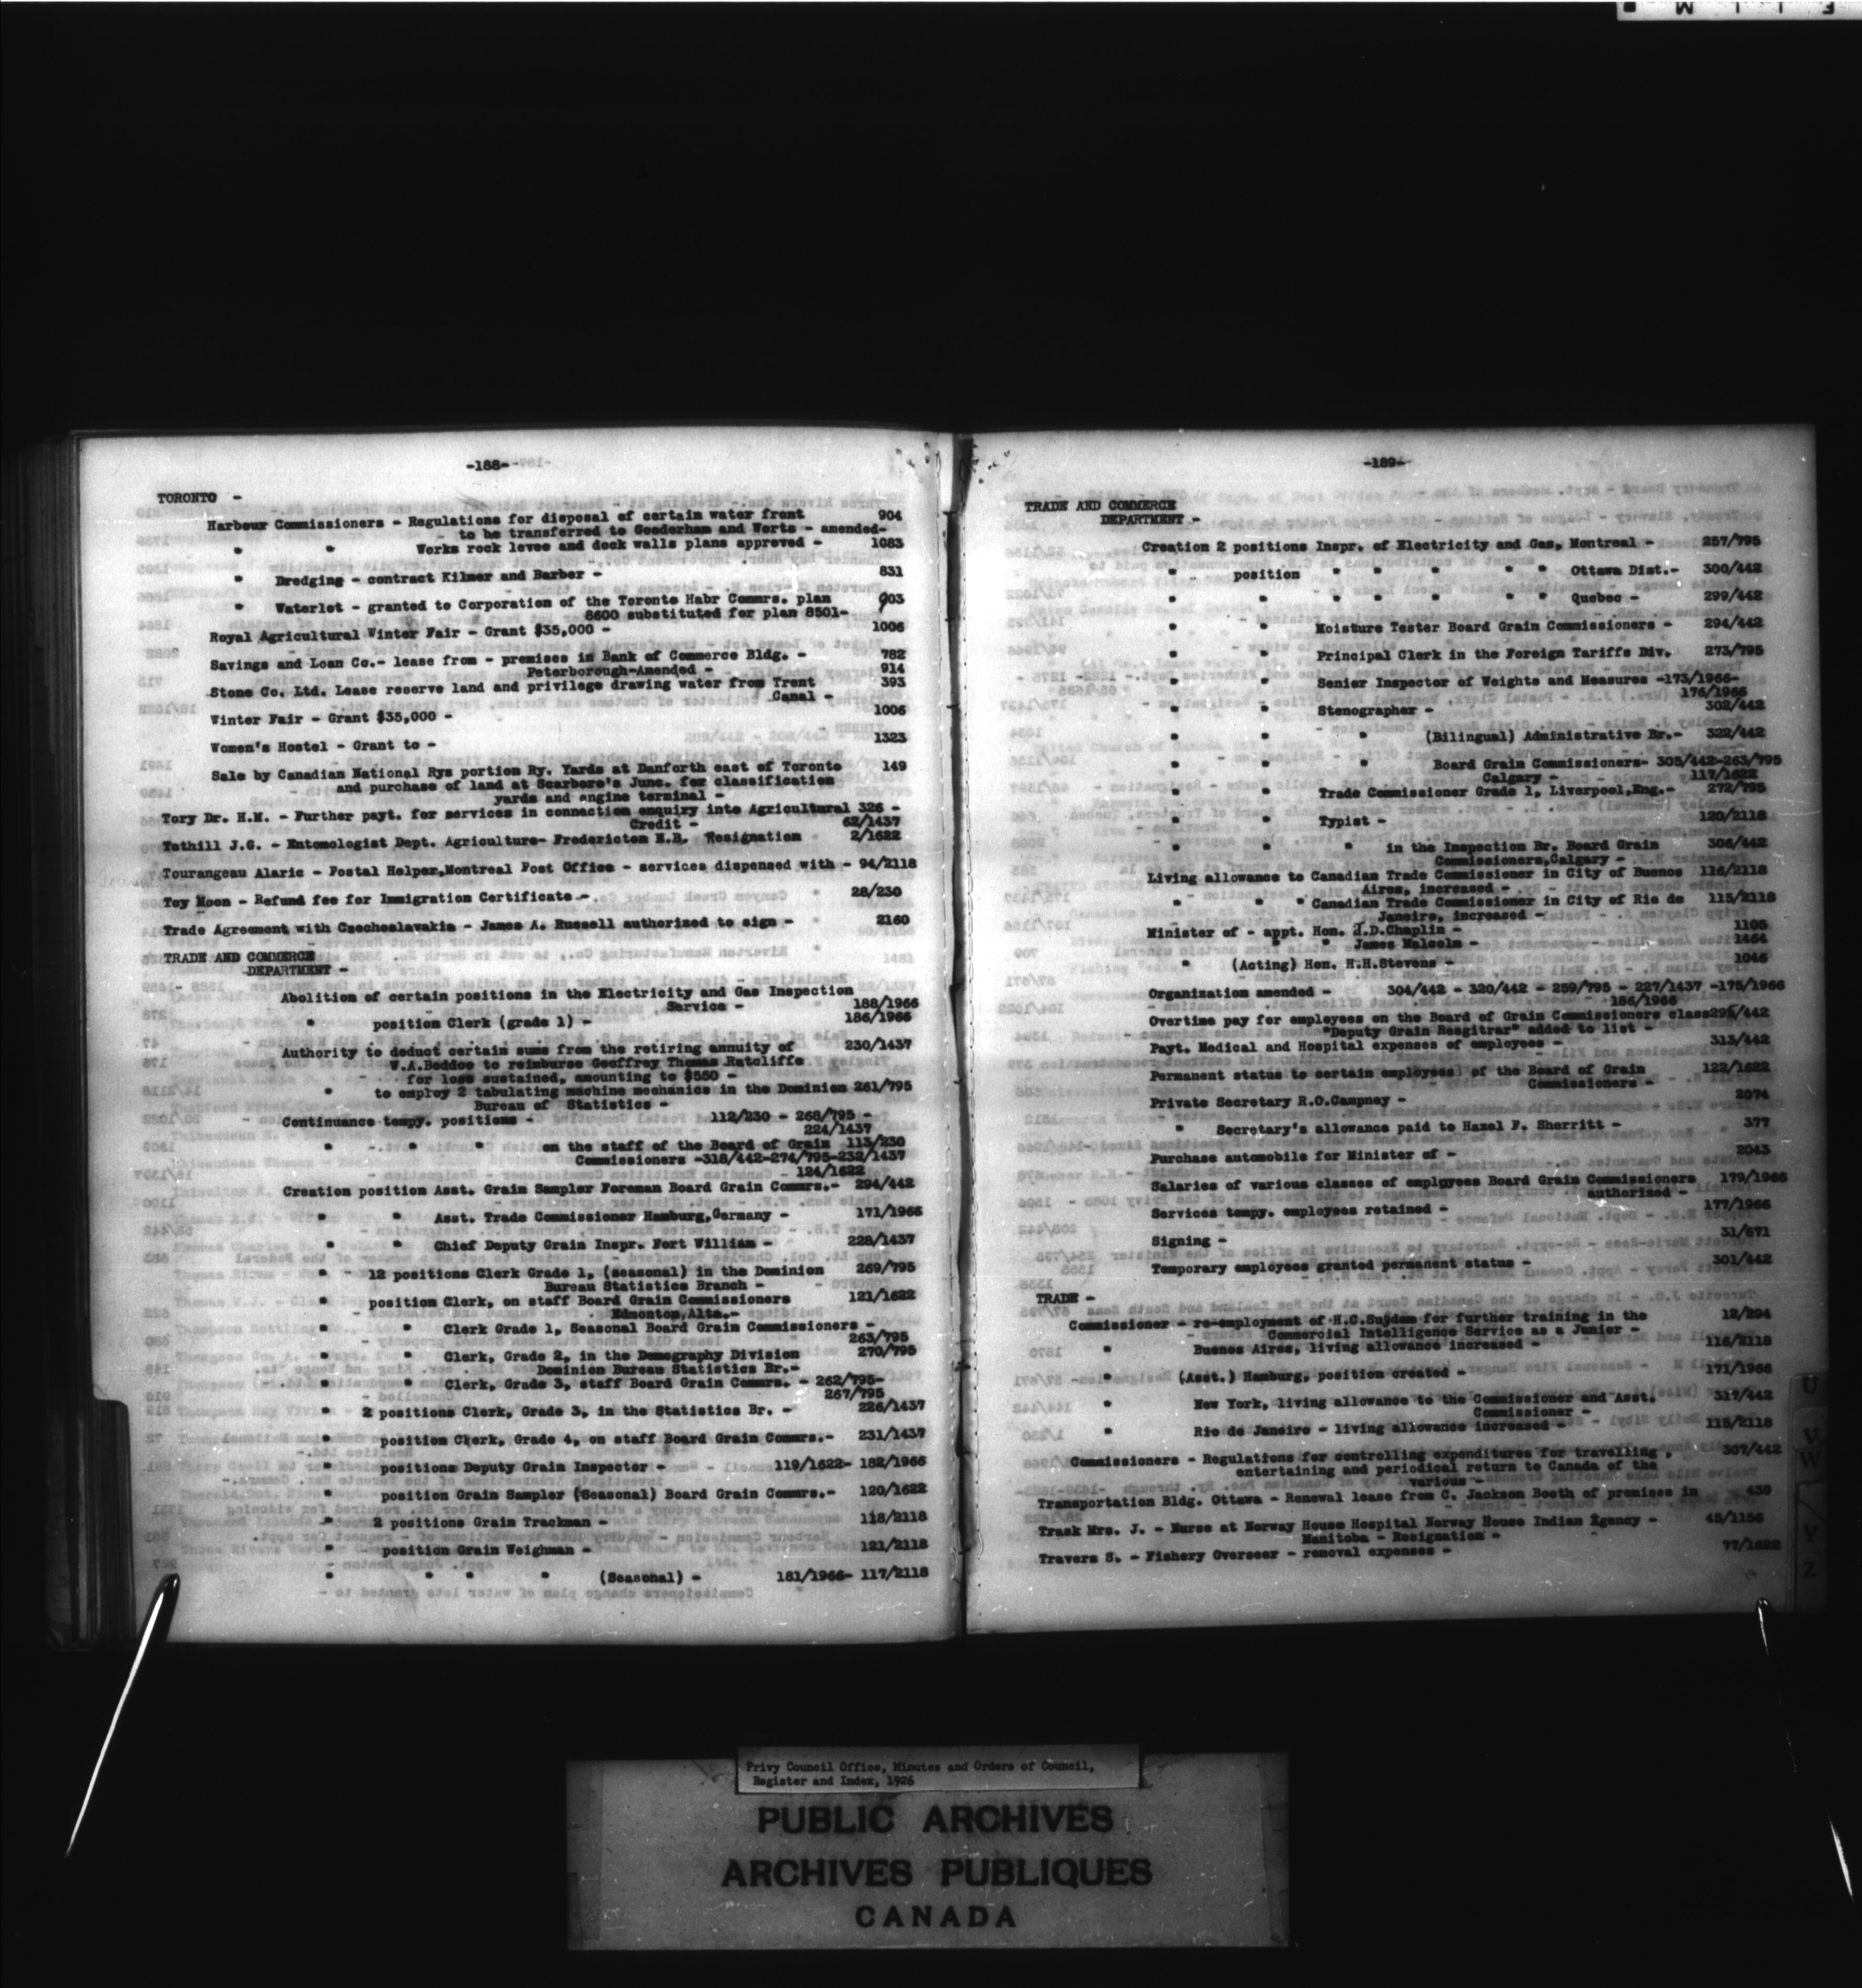 -188-
TORONTO -
Harbour Commissioners - Regulations for disposal of certain water front 904
to be transferred to Gooderham and Worts - amended-
" " Works rock levee and dock walls plans approved - 1083
" Dredging - contract Kilmer and Barber - 831
" Waterlot - granted to Corporation of the Toronto Habr Commrs. plan 903
8600 substituted for plan 8501-
Royal Agricultural Winter Fair - Grant $35,000 - 1006
Savings and Loan Co.- lease from - premises in Bank of Commerce Bldg. - 782
Peterborough-Amended - 914
Stone Co. Ltd. Lease reserve land and privilege drawing water from Trent 393
Canal -
Winter Fair - Grant $35,000 - 1006
Women's Hostel - Grant to - 1323
Sale by Canadian National Rys portion Ry. Yards at Danforth east of Toronto 149
and purchase of land at Scarboro's Junc. for classification
yards and engine terminal -
Tory Dr. H.M. - Further payt. for services in connection enquiry into Agricultural 326 -
Credit - 62/1437
Tothill J.G. - Entomologist Dept. Agriculture- Fredericton N.B. Resignation 2/1622
Tourangeau Alaric - Postal Helper,Montreal Post Office - services dispensed with - 94/2118
Toy Moon - Refund fee for Immigration Certificate - 28/230
Trade Agreement with Czechoslavakia - James A. Russell authorized to sign - 2160
TRADE AND COMMERCE
DEPARTMENT -
Abolition of certain positions in the Electricity and Gas Inspection
Service - 188/1966
" position Clerk (grade 1) - 186/1966
Authority to deduct certain sums from the retiring annuity of 230/1437
W.A.Beddoe to reimburse Geoffrey Thomas Ratcliffe
for loss sustained, amounting to $550 -
" to employ 2 tabulating machine mechanics in the Dominion 261/795
Bureau of Statistics -
Continuance tempy. positions - 112/230 - 268/795 -
224/1437
" " " on the staff of the Board of Grain 113/230
Commissioners -318/442-274/795-232/1437
124/1622
Creation position Asst. Grain Sampler Foreman Board Grain Commrs.- 294/442
" " Asst. Trade Commissioner Hamburg,Germany - 171/1966
" " Chief Deputy Grain Inspr. Fort William - 228/1437
" 12 positions Clerk Grade 1, (seasonal) in the Dominion 269/795
Bureau Statistics Branch -
" position Clerk, on staff Board Grain Commissioners 121/1622
Edmonton,Alta.-
" " Clerk Grade 1, Seasonal Board Grain Commissioners -
263/795
" " Clerk, Grade 2, in the Demography Division 270/795
Dominion Bureau Statistics Br.-
" " Clerk, Grade 3, staff Board Grain Commrs. - 262/795-
267/795
" 2 positions Clerk, Grade 3, in the Statistics Br. - 226/1437
" position Clerk, Grade 4, on staff Board Grain Commrs.- 231/1437
" positions Deputy Grain Inspector - 119/1622- 182/1966
" position Grain Sampler (Seasonal) Board Grain Commrs.- 120/1622
" 2 positions Grain Trackman - 118/2118
" position Grain Weighman - 121/2118
" " " " (Seasonal) - 181/1966- 117/2118
-189-
TRADE AND COMMERCE
DEPARTMENT -
Creation 2 positions Inspr. of Electricity and Gas, Montreal - 257/795
" position " " " " " Ottawa Dist.- 300/442
" " " " " " " Quebec - 299/442
" " Moisture Tester Board Grain Commissioners - 294/442
" " Principal Clerk in the Foreign Tariffs Div. 273/795
" " Senior Inspector of Weights and Measures -173/1966-
176/1966
" " Stenographer - 302/442
" " " (Bilingual) Administrative Br.- 322/442
" " " Board Grain Commissioners- 305/442-263/795
Calgary - 117/1622
" " Trade Commissioner Grade 1, Liverpool,Eng.- 272/795
" " Typist - 120/2118
" " " in the Inspection Br. Board Grain 306/442
Commissioners,Calgary -
Living allowance to Canadian Trade Commissioner in City of Buenos 116/2118
Aires, increased -
" " " Canadian Trade Commissioner in City of Rio de 115/2118
Janeiro, increased -
Minister of - appt. Hon. J.D.Chaplin - 1105
" " James Malcolm - 1464
" (Acting) Hon. H.H.Stevens - 1046
Organization amended - 304/442 - 320/442 - 259/795 - 227/1437 -175/1966
186/1966
Overtime pay for employees on the Board of Grain Commissioners class295/442
"Deputy Grain Resgitrar" added to list -
Payt. Medical and Hospital expenses of employees - 313/442
Permanent status to certain employees of the Board of Grain 122/1622
Commissioners -
Private Secretary R.O.Campney - 2074
" Secretary's allowance paid to Hazel F. Sherritt - 377
Purchase automobile for Minister of - 2043
Salaries of various classes of emplpyees Board Grain Commissioners 179/1966
authorized -
Services tempy. employees retained - 177/1966
Signing - 31/671
Temporary employees granted permanent status - 301/442
TRADE -
Commissioner - re-employment of H.C.Suydam for further training in the 12/294
Commercial Intelligence Service as a Junior -
" Buenos Aires, living allowance increased - 116/2118
" (Asst.) Hamburg, position created - 171/1966
" New York, living allowance to the Commissioner and Asst. 317/442
Commissioner -
" Rio de Janeiro - living allowance increased - 115/2118
Commissioners - Regulations for controlling expenditures for travelling, 307/442
entertaining and periodical return to Canada of the
various -
Transportation Bldg. Ottawa - Renewal lease from C. Jackson Booth of premises in 439
Trask Mrs. J. - Nurse at Norway House Hospital Norway House Indian Agency - 45/1156
Manitoba - Resignation -
Travers S. - Fishery Overseer - removal expenses - 77/1622
U
V
W
Y
Z
Privy Council Office, Minutes and Orders of Council,
Register and Index, 1926
PUBLIC ARCHIVES
ARCHIVES PUBLIQUES
CANADA